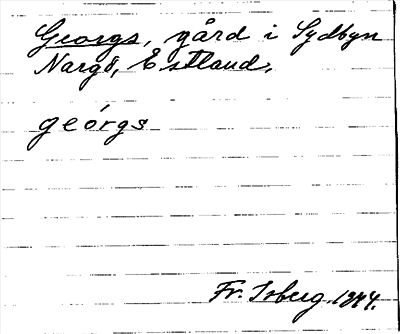 Georgs, gård i Sydbyn
Nargö, Estland.
geórgs
Fr. Isberg 1944.